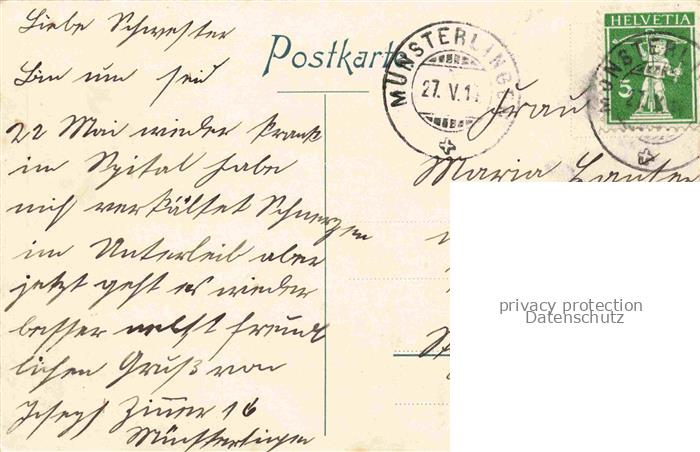 Liebe Schwester
Bin um seid
22 Mai wieder krank
im Spital habe
mich verkältet Schmerzen
im Unterleib aber
jetzt geht es wieder
besser nebst freund
lichen Gruß von
Joseph Zimer 16
Münsterlingen
Postkarte
MÜNSTERLINGEN
27. V. 1
HELVETIA
5
Frau
Maria
privacy protection
Datenschutz